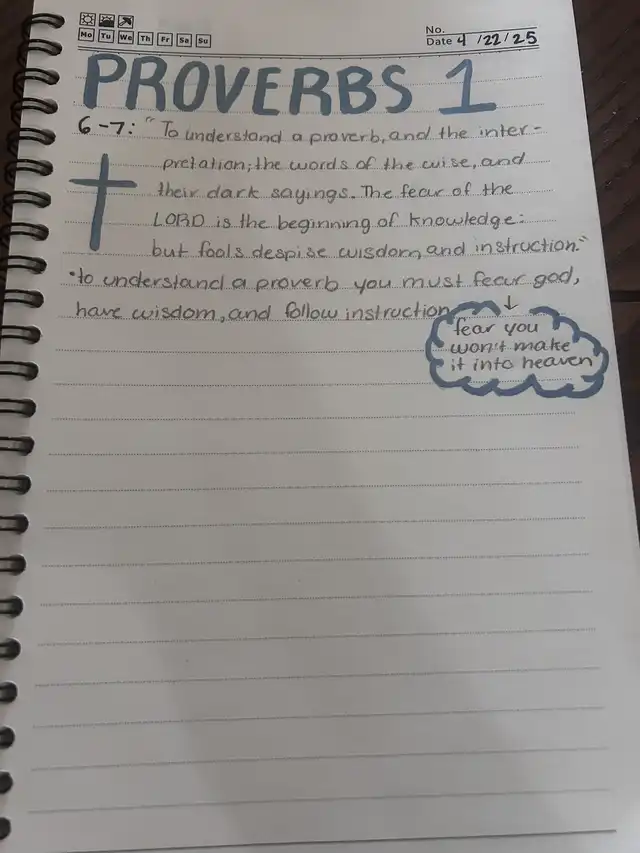 No.
Mo Tu We Th Fr Sa Su
Date 4/22/25
PROVERBS 1
6-7: "To understand a proverb, and the inter-
pretation; the words of the wise, and
their dark sayings. The fear of the
LORD is the beginning of knowledge:
but fools despise wisdom and instruction."
•to understand a proverb you must fear god,
have wisdom, and follow instruction
↓
fear you
won't make
it into heaven